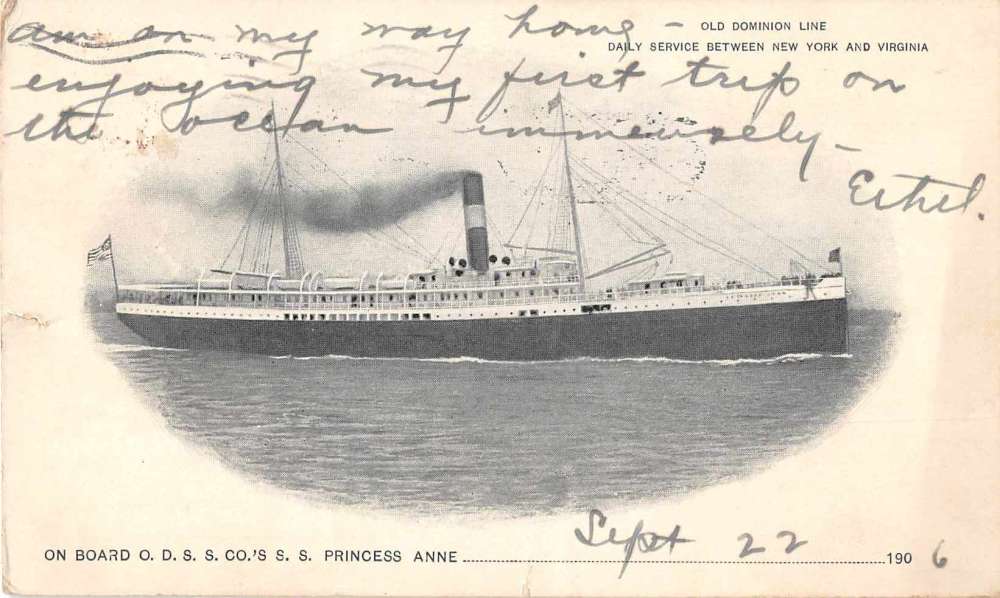 OLD DOMINION LINE
DAILY SERVICE BETWEEN NEW YORK AND VIRGINIA
am on my way home –
enjoying my first trip on
the ocean immensely –
Ethel.
ON BOARD O. D. S. S. CO.'S S. S. PRINCESS ANNE Sept 22 1906